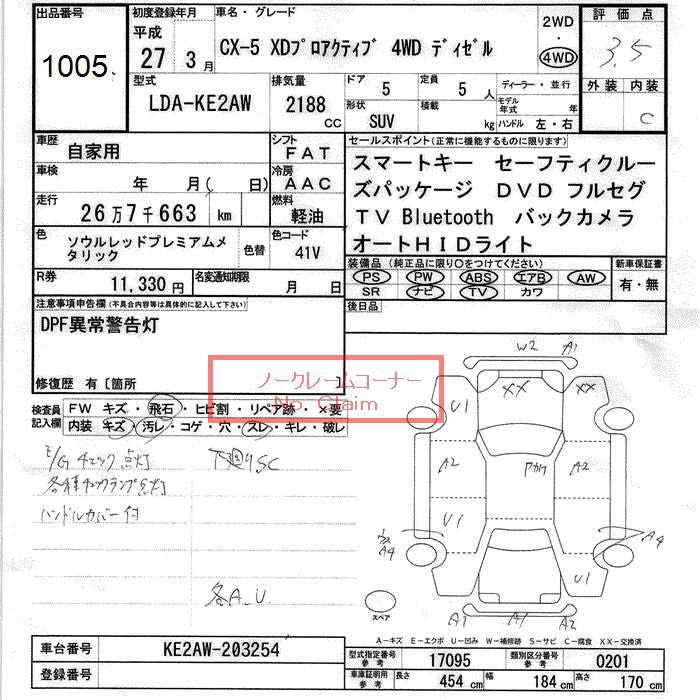 出品番号
1005
初度登録年月
平成
27 3月
車名・グレード
CX-5 XDプロアクティブ 4WD ディーゼル
2WD
・
4WD
評価点
3.5
外装 内装
C
型式
LDA-KE2AW
排気量
2188
CC
ドア
5
定員
5人
形状
SUV
積載
kg
ディーラー・並行
モデル年式 年
ハンドル 左・右
車歴
自家用
シフト
FAT
車検
年 月( 日)
冷房
AAC
走行
26万7千663 km
燃料
軽油
色
ソウルレッドプレミアムメタリック
色替
色コード
41V
R券
11,330円
名変通知期限
月 日
セールスポイント(正常に機能するものに限ります)
スマートキー セーフティクルー
ズパッケージ DVD フルセグ
TV Bluetooth バックカメラ
オートHIDライト
装備品(純正品に限り○をつけてください)
PS PW ABS エアB AW
SR ナビ TV カワ
新車保証書
有・無
後日品
注意事項申告欄(不具合内容等は具体的に記入して下さい)
DPF異常警告灯
修復歴 有〔箇所 〕
ノークレームコーナー
No. Claim
検査員記入欄
FW キズ・飛石・ヒビ割・リペア跡・×要
内装 キズ・汚レ・コゲ・穴・スレ・キレ・破レ
E/Gチェック点灯
下廻りSC
各種チェックランプ点灯
ハンドルカバー付
各A.U.
W2 A1
XX XX
U1
A2 A2
U1
A4 A4
U1
A1 A1 A2
スペア
A-キズ E-エクボ U-凹み W-補修跡 S-サビ C-腐食 XX-交換済
車台番号
KE2AW-203254
登録番号
型式指定番号
参考
17095
類別区分番号
参考
0201
車庫証明用
参考
長さ
454 cm
幅
184 cm
高さ
170 cm